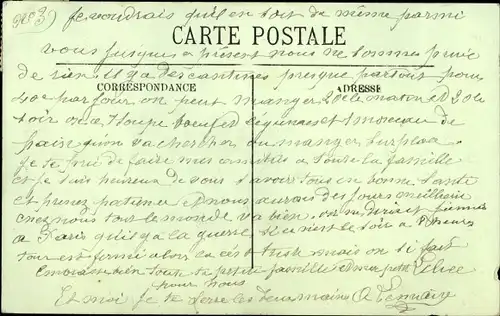 No 3) je voudrais qu'il en soit de même parmi
CARTE POSTALE
vous jusqu'à présent nous ne sommes privé
de rien il y a des cantines presque partout pour
CORRESPONDANCE
ADRESSE
40c par jour on peut manger 20c le matin et 20 le
soir on a soupe boeuf légumes et 1 morceau de
pain qu'on va chercher ou manger sur place
je te prie de faire mes amitiés a toute la famille
et je suis heureux de vous savoir tous en bonne santé
et prenez patience nous aurons des jours meilleurs
chez nous tout le monde va bien on ne dirait jamais
a Paris qu'il y a la guerre si ce n'est le soir a 8 heures
tout est fermé alors là c'est triste mais on s'y fait
Embrasse bien toute ta petite famille petit
pour nous
Et moi je te serre les deux mains